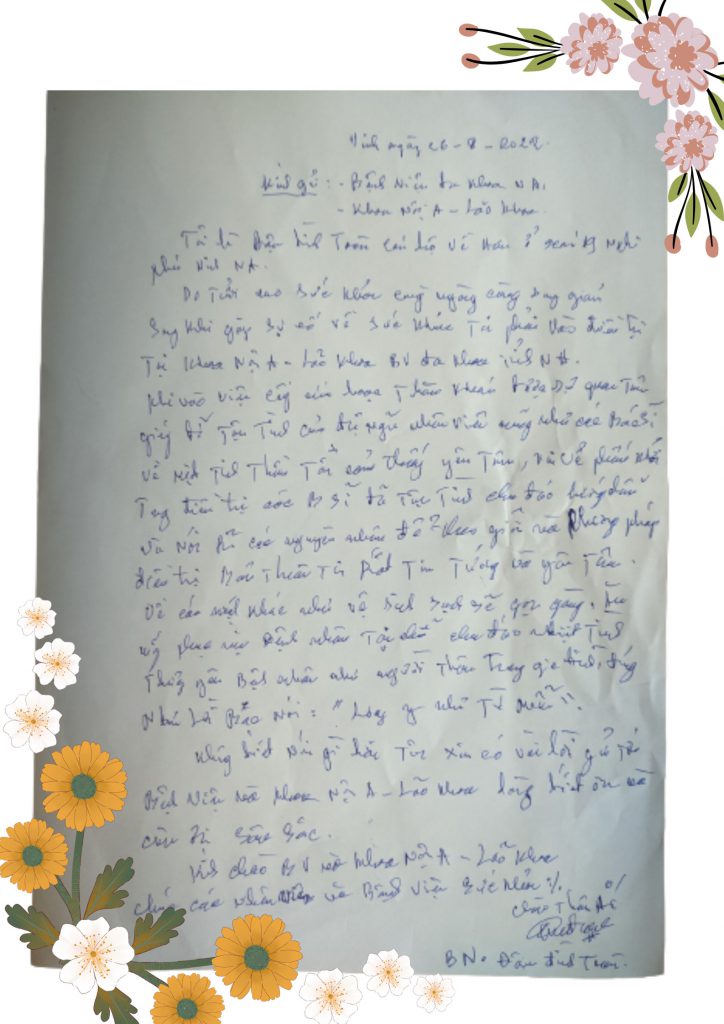 Vinh ngày 26 - 8 - 2022.
Kính gửi: - Bệnh Viện đa khoa NA.
- Khoa Nội A - Lão khoa.
Tôi là Đậu Đình Toàn căn hộ về hưu ở
phú Vinh NA.
Do tuổi cao sức khỏe cũng ngày càng suy giảm
Sau khi gặp sự cố về sức khỏe Tôi phải vào điều trị
Tại khoa Nội A - Lão khoa BV đa khoa Tỉnh NA.
Khi vào viện cũng thăm khám được sự quan tâm
giúp đỡ tận tình của đội ngũ nhân viên cũng như các Bác sĩ
về mặt tinh thần Tôi cảm thấy yên tâm, về phần
điều trị các B sĩ đã tận tình chu đáo hướng dẫn
và nói rõ các nguyên nhân để theo giỏi và phương pháp
điều trị Bản thân Tôi rất tin tưởng và yên tâm.
Về các mặt khác như vệ sinh sạch sẽ gọn gàng.
phục vụ bệnh nhân tại chỗ chu đáo nhiệt tình
Bệnh nhân như người thân trong gia đình, đúng
như lời Bác nói: "Lương y như Từ mẫu".
Không biết nói gì hơn Tôi xin có vài lời gửi tới
Bệnh Viện và khoa Nội A - Lão khoa lòng biết ơn và
sâu sắc.
Kính chào BV và khoa Nội A - Lão khoa
chúc các nhân viên và Bệnh viện sức khỏe
Chào Thân Ái
BN. Đậu Đình Toàn.